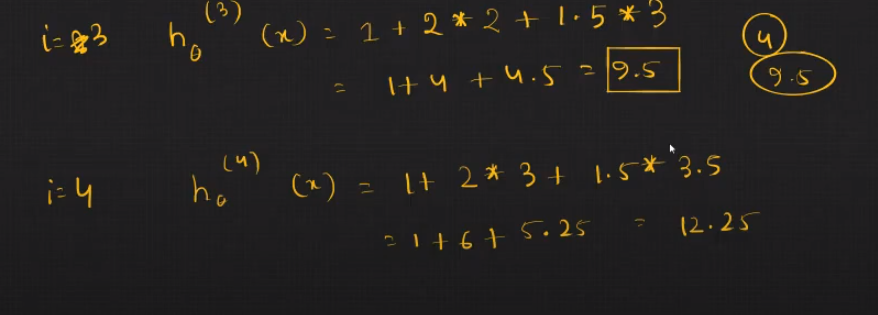 i=3 h₀⁽³⁾ (x) = 1 + 2 * 2 + 1.5 * 3
= 1 + 4 + 4.5 = 9.5
4
9.5
i=4 h₀⁽⁴⁾ (x) = 1 + 2 * 3 + 1.5 * 3.5
= 1 + 6 + 5.25 = 12.25